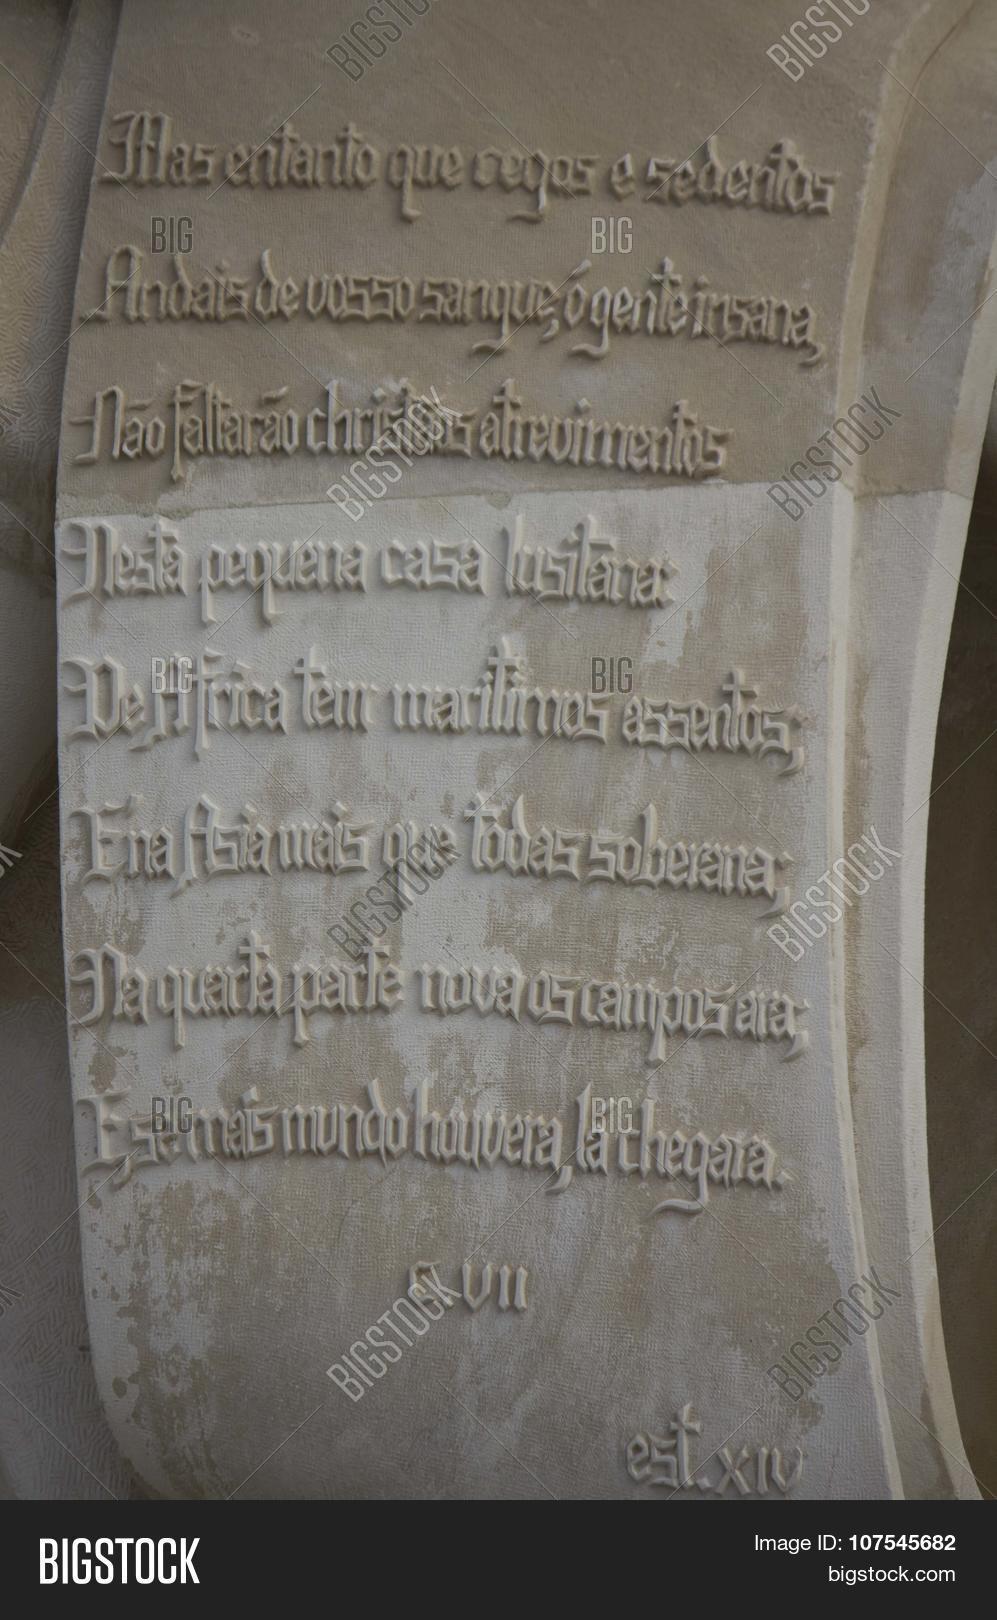 Mas entanto que cegos e sedentos
Andais de vosso sangue, ó gente insana,
Não faltarão christãos atrevimentos
Nesta pequena casa lusitana:
De Africa tem maritimos assentos;
E na Asia mais que todas soberana;
Na quarta parte nova os campos ara;
E, se mais mundo houvera, lá chegara.
C. VII
est. XIV
BIGSTOCK
Image ID: 107545682
bigstock.com